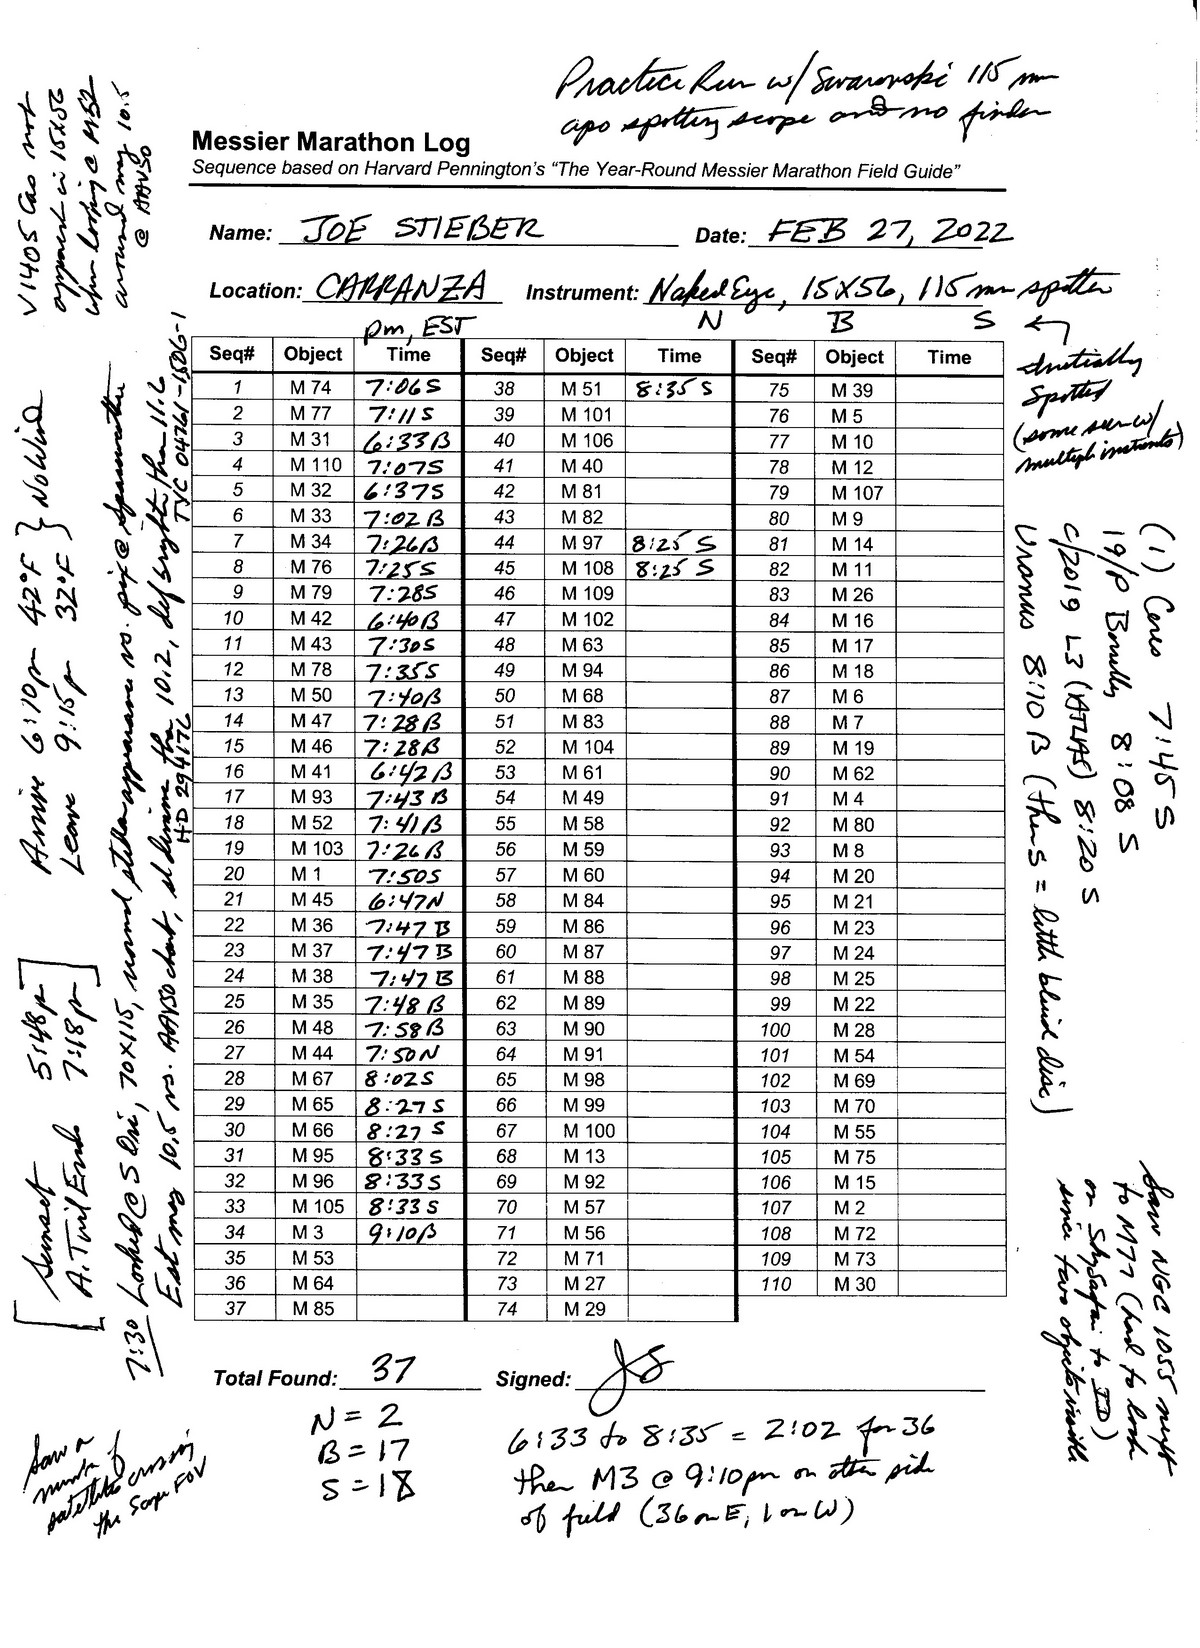 Practice Run w/ Swarovski 115 mm
apo spotting scope and no finder
Messier Marathon Log
Sequence based on Harvard Pennington's "The Year-Round Messier Marathon Field Guide"
Name: JOE STIEBER Date: FEB 27, 2022
Location: CARRANZA Instrument: Naked Eye, 15X56, 115 mm spotter
pm, EST N B S
Seq# Object Time Seq# Object Time Seq# Object Time
1 M 74 7:06 S 38 M 51 8:35 S 75 M 39
2 M 77 7:11 S 39 M 101 76 M 5
3 M 31 6:33 B 40 M 106 77 M 10
4 M 110 7:07 S 41 M 40 78 M 12
5 M 32 6:37 S 42 M 81 79 M 107
6 M 33 7:02 B 43 M 82 80 M 9
7 M 34 7:26 B 44 M 97 8:25 S 81 M 14
8 M 76 7:25 S 45 M 108 8:25 S 82 M 11
9 M 79 7:28 S 46 M 109 83 M 26
10 M 42 6:40 B 47 M 102 84 M 16
11 M 43 7:30 S 48 M 63 85 M 17
12 M 78 7:35 S 49 M 94 86 M 18
13 M 50 7:40 B 50 M 68 87 M 6
14 M 47 7:28 B 51 M 83 88 M 7
15 M 46 7:28 B 52 M 104 89 M 19
16 M 41 6:42 B 53 M 61 90 M 62
17 M 93 7:43 B 54 M 49 91 M 4
18 M 52 7:41 B 55 M 58 92 M 80
19 M 103 7:26 B 56 M 59 93 M 8
20 M 1 7:50 S 57 M 60 94 M 20
21 M 45 6:47 N 58 M 84 95 M 21
22 M 36 7:47 B 59 M 86 96 M 23
23 M 37 7:47 B 60 M 87 97 M 24
24 M 38 7:47 B 61 M 88 98 M 25
25 M 35 7:48 B 62 M 89 99 M 22
26 M 48 7:58 B 63 M 90 100 M 28
27 M 44 7:50 N 64 M 91 101 M 54
28 M 67 8:02 S 65 M 98 102 M 69
29 M 65 8:27 S 66 M 99 103 M 70
30 M 66 8:27 S 67 M 100 104 M 55
31 M 95 8:33 S 68 M 13 105 M 75
32 M 96 8:33 S 69 M 92 106 M 15
33 M 105 8:33 S 70 M 57 107 M 2
34 M 3 9:10 B 71 M 56 108 M 72
35 M 53 72 M 71 109 M 73
36 M 64 73 M 27 110 M 30
37 M 85 74 M 29
Total Found: 37 Signed: JS
N = 2
B = 17
S = 18
6:33 to 8:35 = 2:02 for 36
then M3 @ 9:10pm on other side
of field (36 on E, 1 on W)
Initially
Spotted
(some seen w/
multiple instruments)
(1) Ceres 7:45 S
19/P Borrelly 8:08 S
C/2019 L3 (ATLAS) 8:20 S
Uranus 8:10 B (then S = little blue disc)
Saw NGC 1055 next
to M77 (had to look
on SkySafari to ID)
since two objects visible
V1405 Cas not
apparent in 15x56
when looking @ M52
around mag 10.5
@ AAVSO
Arrive 6:10pm 42°F } No Wind
Leave 9:15p 32°F
[Sunset 5:48p]
A. Twil Ends 7:18p
7:30 Looked @ S Ori, 70x115, normal stellar appearance vs. pix @ Spaceweather
Est mag 10.5 vs. AAVSO chart, sl dimmer than 10.2, def brighter than 11.6
HD 294176 TYC 04761-1506-1
Saw a
number of
satellites crossing
the Scope FOV